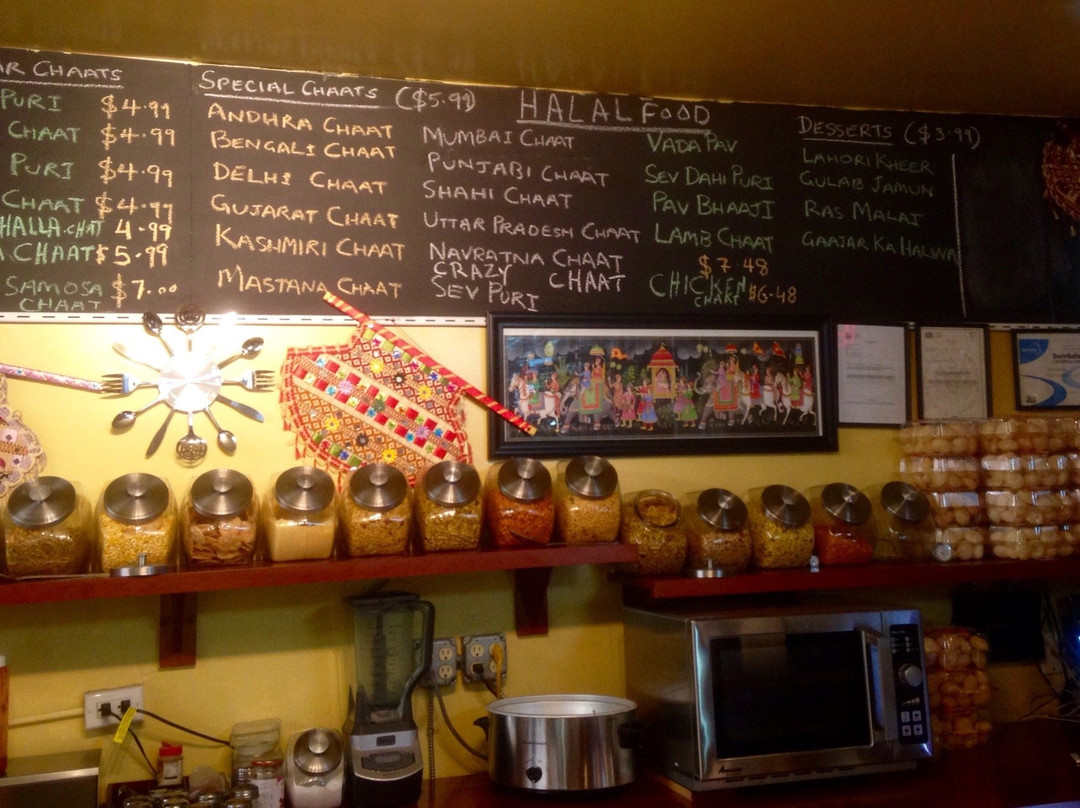 AR CHAATS
PURI $4.99
CHAAT $4.99
PURI $4.99
CHAAT $4.99
HALLA.CHAT 4.99
A CHAAT $5.99
SAMOSA $7.00
CHAAT
SPECIAL CHAATS ($5.99)
ANDHRA CHAAT
BENGALI CHAAT
DELHI CHAAT
GUJARAT CHAAT
KASHMIRI CHAAT
MASTANA CHAAT
HALAL FOOD
MUMBAI CHAAT
PUNJABI CHAAT
SHAHI CHAAT
UTTAR PRADESH CHAAT
NAVRATNA CHAAT
CRAZY CHAAT
SEV PURI
VADA PAV
SEV DAHI PURI
PAV BHAAJI
LAMB CHAAT
$7.48
CHICKEN
CHAAT $6.48
DESSERTS ($3.99)
LAHORI KHEER
GULAB JAMUN
RAS MALAI
GAAJAR KA HALWA